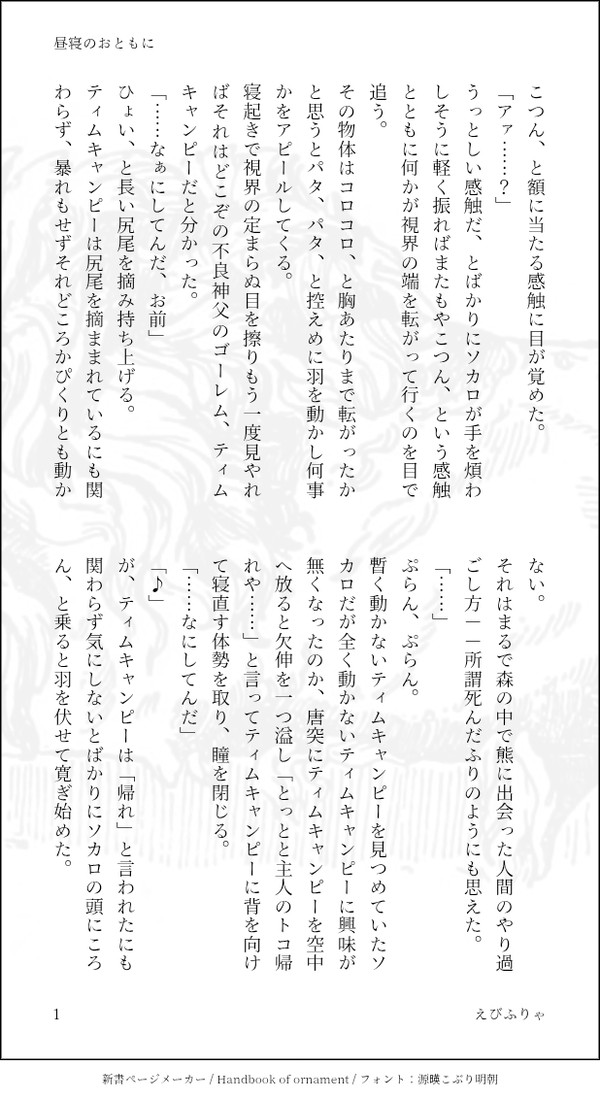 昼寝のおともに
こつん、と額に当たる感触に目が覚めた。
「アァ……？」
うっとしい感触だ、とばかりにソカロが手を煩わ
しそうに軽く振ればまたもやこつん、という感触
とともに何かが視界の端を転がって行くのを目で
追う。
その物体はコロコロ、と胸あたりまで転がったか
と思うとパタ、パタ、と控えめに羽を動かし何事
かをアピールしてくる。
寝起きで視界の定まらぬ目を擦りもう一度見やれ
ばそれはどこぞの不良神父のゴーレム、ティム
キャンピーだと分かった。
「……なぁにしてんだ、お前」
ひょい、と長い尻尾を摘み持ち上げる。
ティムキャンピーは尻尾を摘ままれているにも関
わらず、暴れもせずそれどころかぴくりとも動か
ない。
それはまるで森の中で熊に出会った人間のやり過
ごし方――所謂死んだふりのようにも思えた。
「……」
ぷらん、ぷらん。
暫く動かないティムキャンピーを見つめていたソ
カロだが全く動かないティムキャンピーに興味が
無くなったのか、唐突にティムキャンピーを空中
へ放ると欠伸を一つ溢し「とっとと主人のトコ帰
れや……」と言ってティムキャンピーに背を向け
て寝直す体勢を取り、瞳を閉じる。
「……なにしてんだ」
「♪」
が、ティムキャンピーは「帰れ」と言われたにも
関わらず気にしないとばかりにソカロの頭にころ
ん、と乗ると羽を伏せて寛ぎ始めた。
1
えびふりゃ
新書ページメーカー / Handbook of ornament / フォント：源暎こぶり明朝